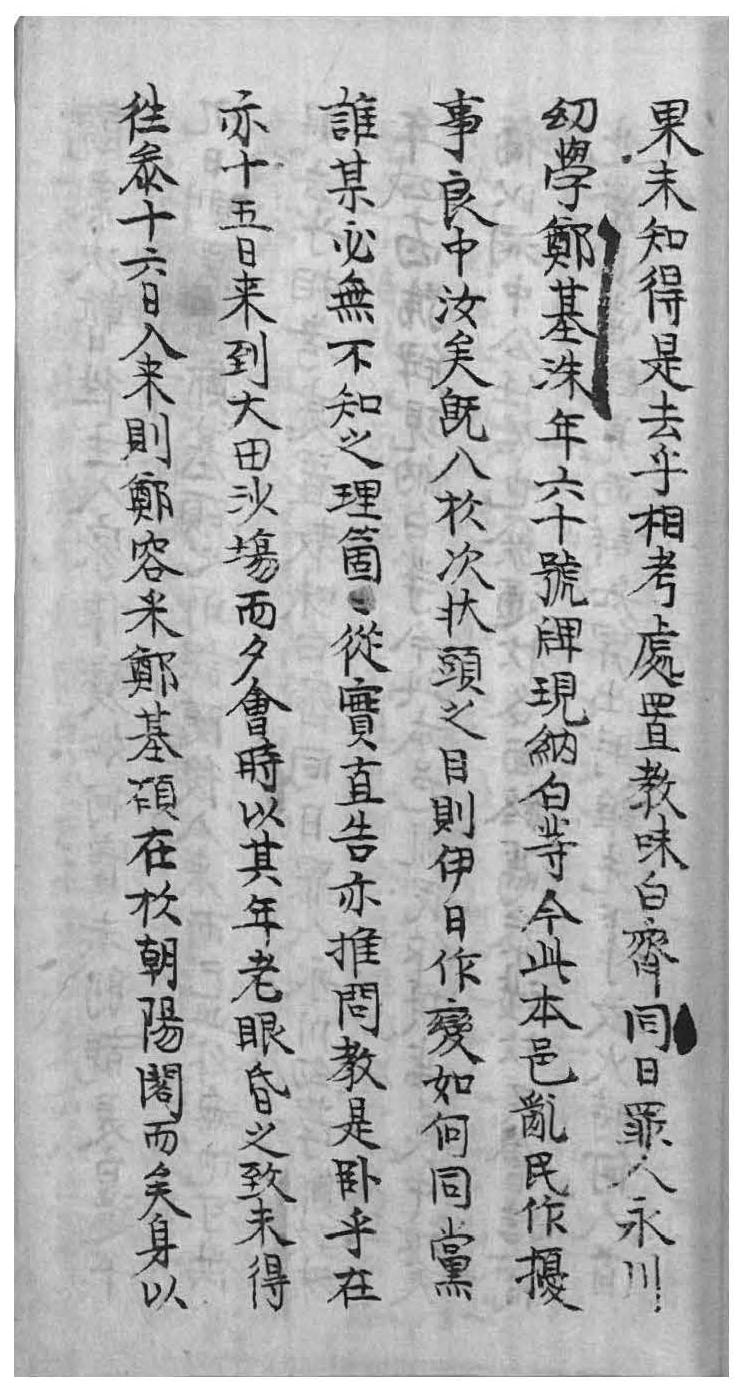 果未知得是去乎相考處置教味白齊同日罪人永川
幼學鄭基洙年六十號牌現納白等今此本邑亂民作擾
事良中汝矣旣八於次狀頭之目則伊日作變如何同黨
誰某必無不知之理箇〻從實直告亦推問教是卧乎在
亦十五日来到大田沙塲而夕會時以其年老眼昏之致未得
徃叅十六日入来則鄭容米鄭基碩在於朝陽閣而矣身以